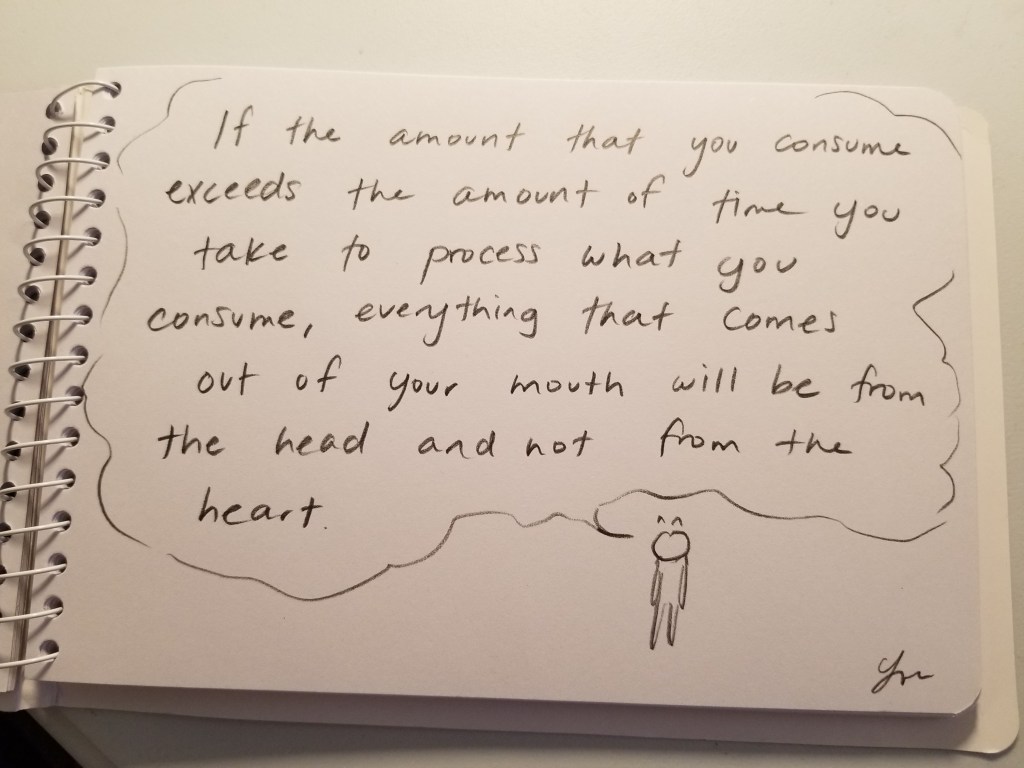 If the amount that you consume
exceeds the amount of time you
take to process what you
consume, everything that comes
out of your mouth will be from
the head and not from the
heart.